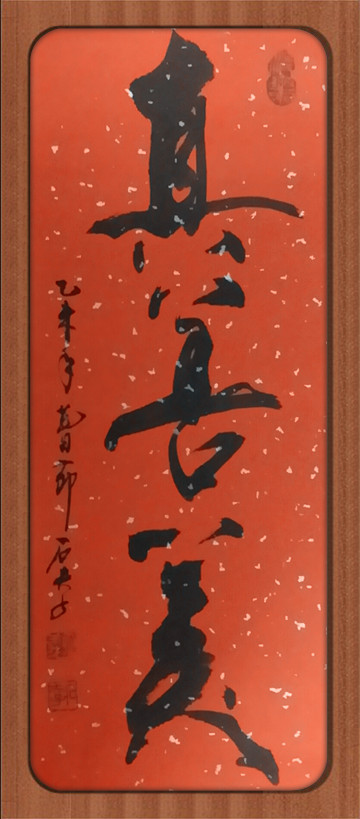 真善美
乙未年春节石